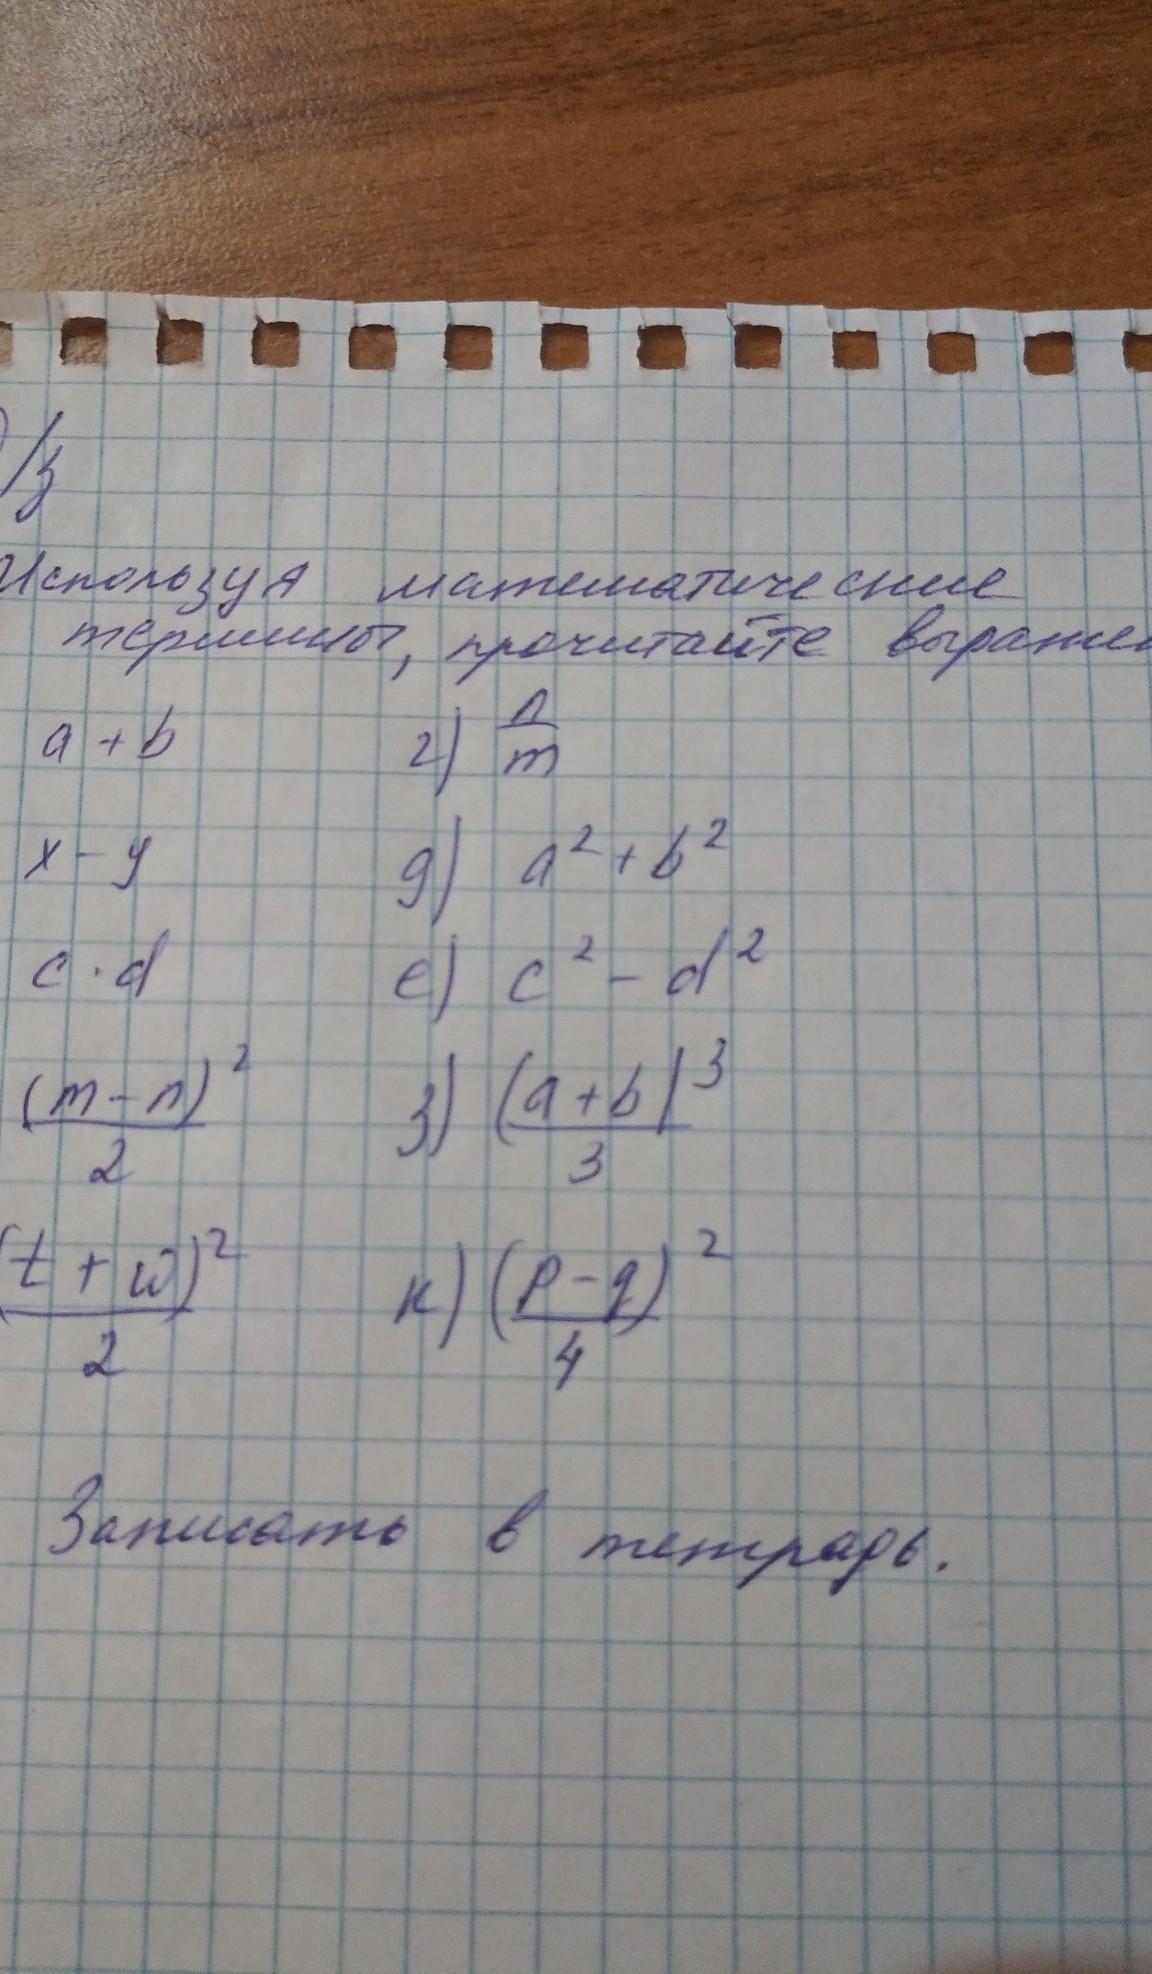 /з
Используя математические
термины, прочитайте выражен
a + b г) n/m
x - y д) a² + b²
c · d е) c² - d²
(m - n)²/2 з) (a + b)³/3
(t + w)²/2 к) (p - q)²/4
Записать в тетрадь.